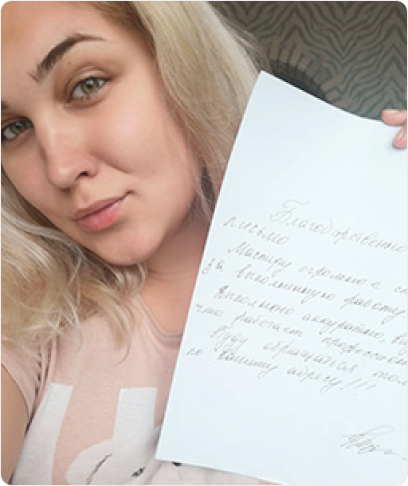 Благодарственно
письмо
Мастеру огромно е сп
за выполненную работу
Выполнено аккуратно, ви
что работает профессион
Буду обращаться толь
по Вашему адресу!!!